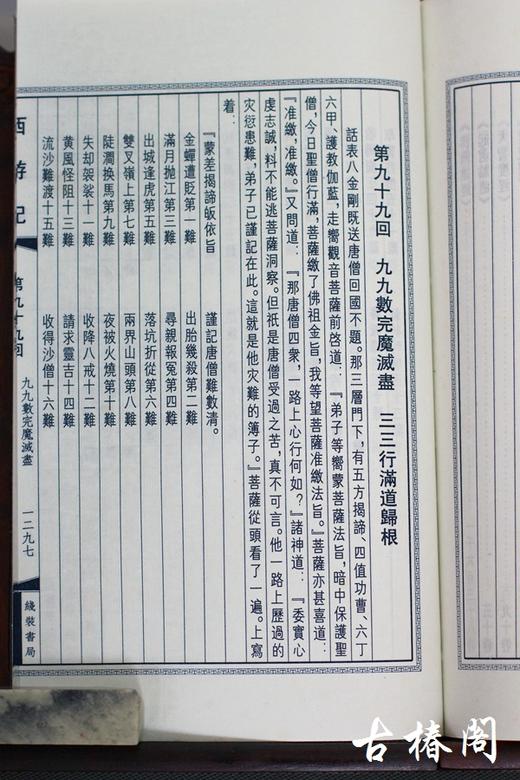 第九十九回　九九數完魔滅盡　三三行滿道歸根
話表八金剛既送唐僧回國不題。那三層門下，有五方揭諦、四值功曹、六丁
六甲、護教伽藍，走嚮觀音菩薩前啓道：『弟子等嚮蒙菩薩法旨，暗中保護聖
僧，今日聖僧行滿，菩薩繳了佛祖金旨，我等望菩薩准繳法旨。』菩薩亦甚喜道：
『准繳，准繳。』又問道：『那唐僧四衆，一路上心行何如？』諸神道：『委實心
虔志誠，料不能逃菩薩洞察。但祇是唐僧受過之苦，真不可言。他一路上歷過的
灾衍患難，弟子已謹記在此。這就是他灾難的簿子。』菩薩從頭看了一遍。上寫
着：
『蒙差揭諦皈依旨　謹記唐僧難數清。
金蟬遭貶第一難　出胎幾殺第二難
滿月抛江第三難　尋親報冤第四難
出城逢虎第五難　落坑折從第六難
雙叉嶺上第七難　兩界山頭第八難
陡澗換馬第九難　夜被火燒第十難
失却袈裟十一難　收降八戒十二難
黄風怪阻十三難　請求靈吉十四難
流沙難渡十五難　收得沙僧十六難
西游记　第九十九回　九九數完魔滅盡　一二九七　綫裝書局
古椿阁